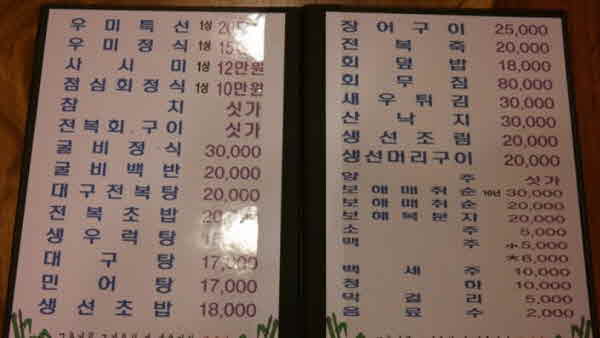 우미특선 1상
우미정식 1상
사시미 1상 12만원
점심회정식 1상 10만원
참치 싯가
전복회.구이 싯가
굴비정.식 30,000
굴비백반 20,000
대구전복탕 20,000
전복초밥
생우럭탕
대구탕 17,000
민어탕 17,000
생선초밥 18,000
장어구이 25,000
전복죽 20,000
회덮밥 18,000
회무침 80,000
새우튀김 30,000
산낙지 30,000
생선조림 20,000
생선머리구이 20,000
양주 싯가
보해매취순 10년 30,000
보해매취순 20,000
보해복분자 20,000
소주 5,000
맥주 小 5,000
大 6,000
백세주 10,000
청하 10,000
막걸리 5,000
음료수 2,000